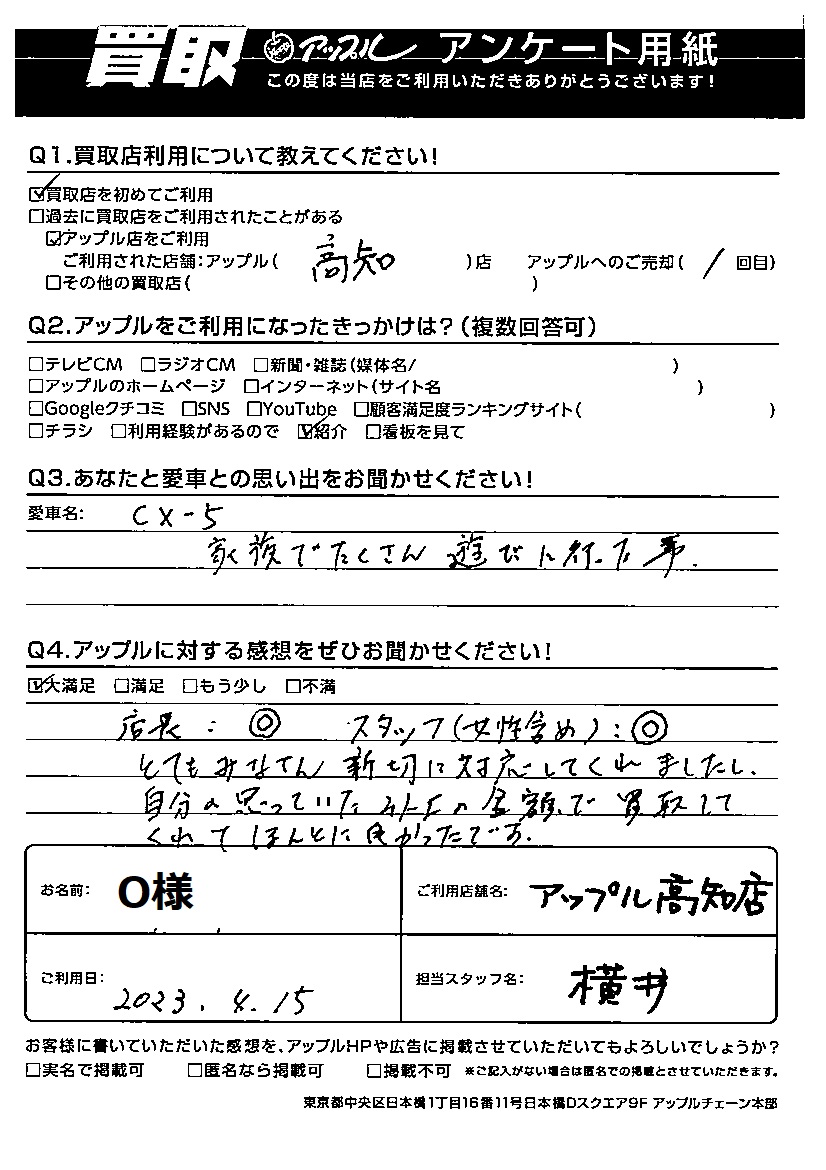 買取 アップル アンケート用紙
この度は当店をご利用いただきありがとうございます！
Q1.買取店利用について教えてください！
☑買取店を初めてご利用
□過去に買取店をご利用されたことがある
☑アップル店をご利用
ご利用された店舗：アップル（ 高知 ）店 アップルへのご売却（ / 回目）
□その他の買取店（ ）
Q2.アップルをご利用になったきっかけは？（複数回答可）
□テレビCM □ラジオCM □新聞・雑誌（媒体名/ ）
□アップルのホームページ □インターネット（サイト名 ）
□Googleクチコミ □SNS □YouTube □顧客満足度ランキングサイト（ ）
□チラシ □利用経験があるので ☑紹介 □看板を見て
Q3.あなたと愛車との思い出をお聞かせください！
愛車名： CX-5
家族でたくさん遊びに行った事.
Q4.アップルに対する感想をぜひお聞かせください！
☑大満足 □満足 □もう少し □不満
店長：◎ スタッフ（女性含め）：◎
とてもみなさん 新切に対応してくれましたし、
自分の思っていた以上の金額で買取して
くれてほんとに良かったです。
お名前： O様 ご利用店舗名： アップル高知店
ご利用日： 2023.4.15 担当スタッフ名： 横井
お客様に書いていただいた感想を、アップルHPや広告に掲載させていただいてもよろしいでしょうか？
□実名で掲載可 □匿名なら掲載可 □掲載不可 ※ご記入がない場合は匿名での掲載とさせていただきます。
東京都中央区日本橋1丁目16番11号日本橋Dスクエア9F アップルチェーン本部